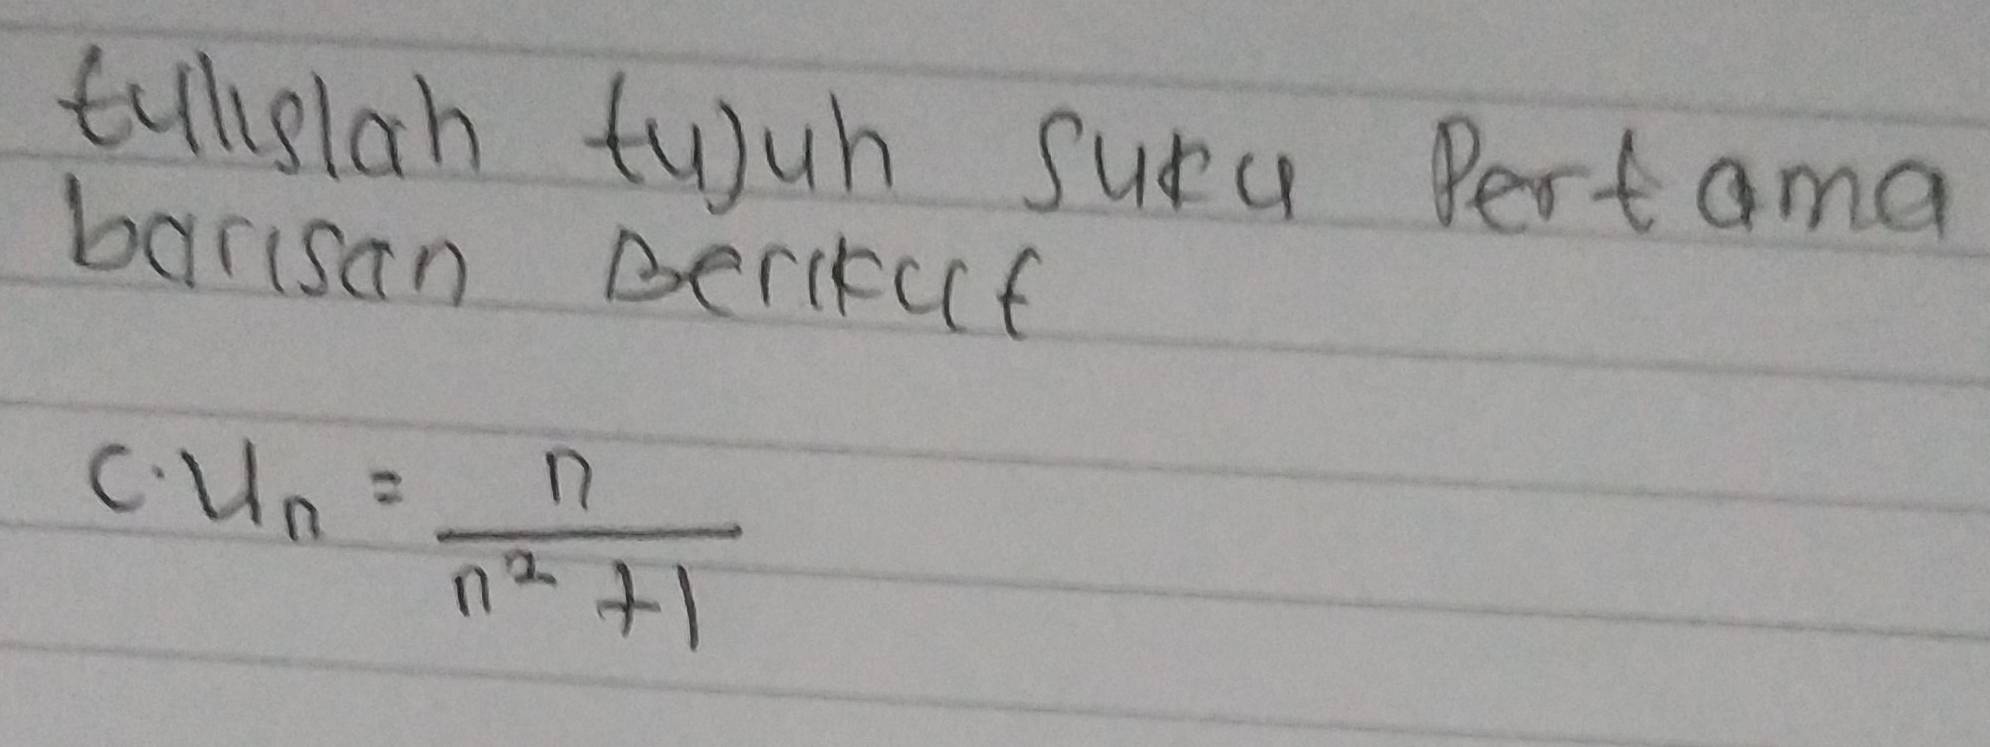 tulislah tujuh suku Pertama
barisan Berikut
C. Un = n / n² + 1